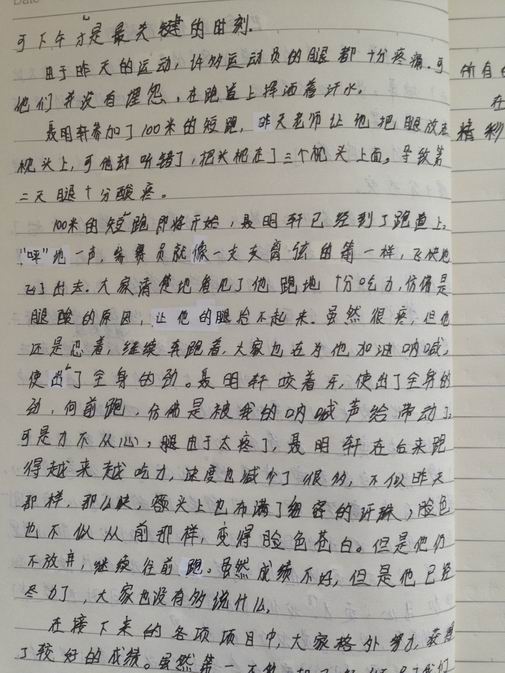 可下午才是最关键的时刻.
由于昨天的运动,许多运动员的腿都十分疼痛.可
他们并没有埋怨,在跑道上挥洒着汗水.
聂明轩参加了100米的短跑,昨天老师让他把腿放在
枕头上,可他却听错了,把头枕在了三个枕头上面。导致第
二天腿十分酸疼。
100米的短跑即将开始,聂明轩已经到了跑道上。
"呯"地一声,参赛员就像一支支离弦的箭一样,飞快地
飞了出去.大家清楚地看见了他跑地十分吃力,仿佛是
腿酸的原因,让他的腿抬不起来.虽然很疼,但他
还是忍着,继续奔跑着,大家也在为他加油呐喊,
使出了全身的劲。聂明轩咬着牙,使出了全身的
劲,向前跑,仿佛是被我的呐喊声给带动了。
可是力不从心,腿由于太疼了,聂明轩在后来跑
得越来越吃力,速度也减少了很多,不似昨天
那样,那么快,额头上也布满了细密的汗珠,脸色
也不似从前那样,变得脸色苍白。但是他仍
不放弃,继续往前跑。虽然成绩不好,但是他已经
尽力了,大家也没有多说什么。
在接下来的各项项目中,大家格外努力,获得
了较好的成绩。虽然第一不
所有
在
精秒